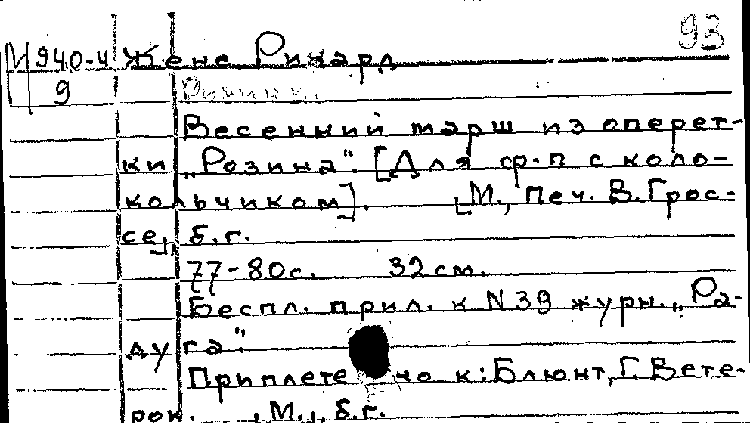 93
М 940-4 Жене Ришард
9
Весенний марш из оперет-
ки „Розина". [Для ф-п с коло-
кольчиком]. [М., Печ. В. Грос-
се], б.г.
77-80 с. 32 см.
Беспл. прил. к N 39 журн. „Ра-
дуга".
Приплетено к: Блюнт, Г. Вете-
рок. , М., б.г.